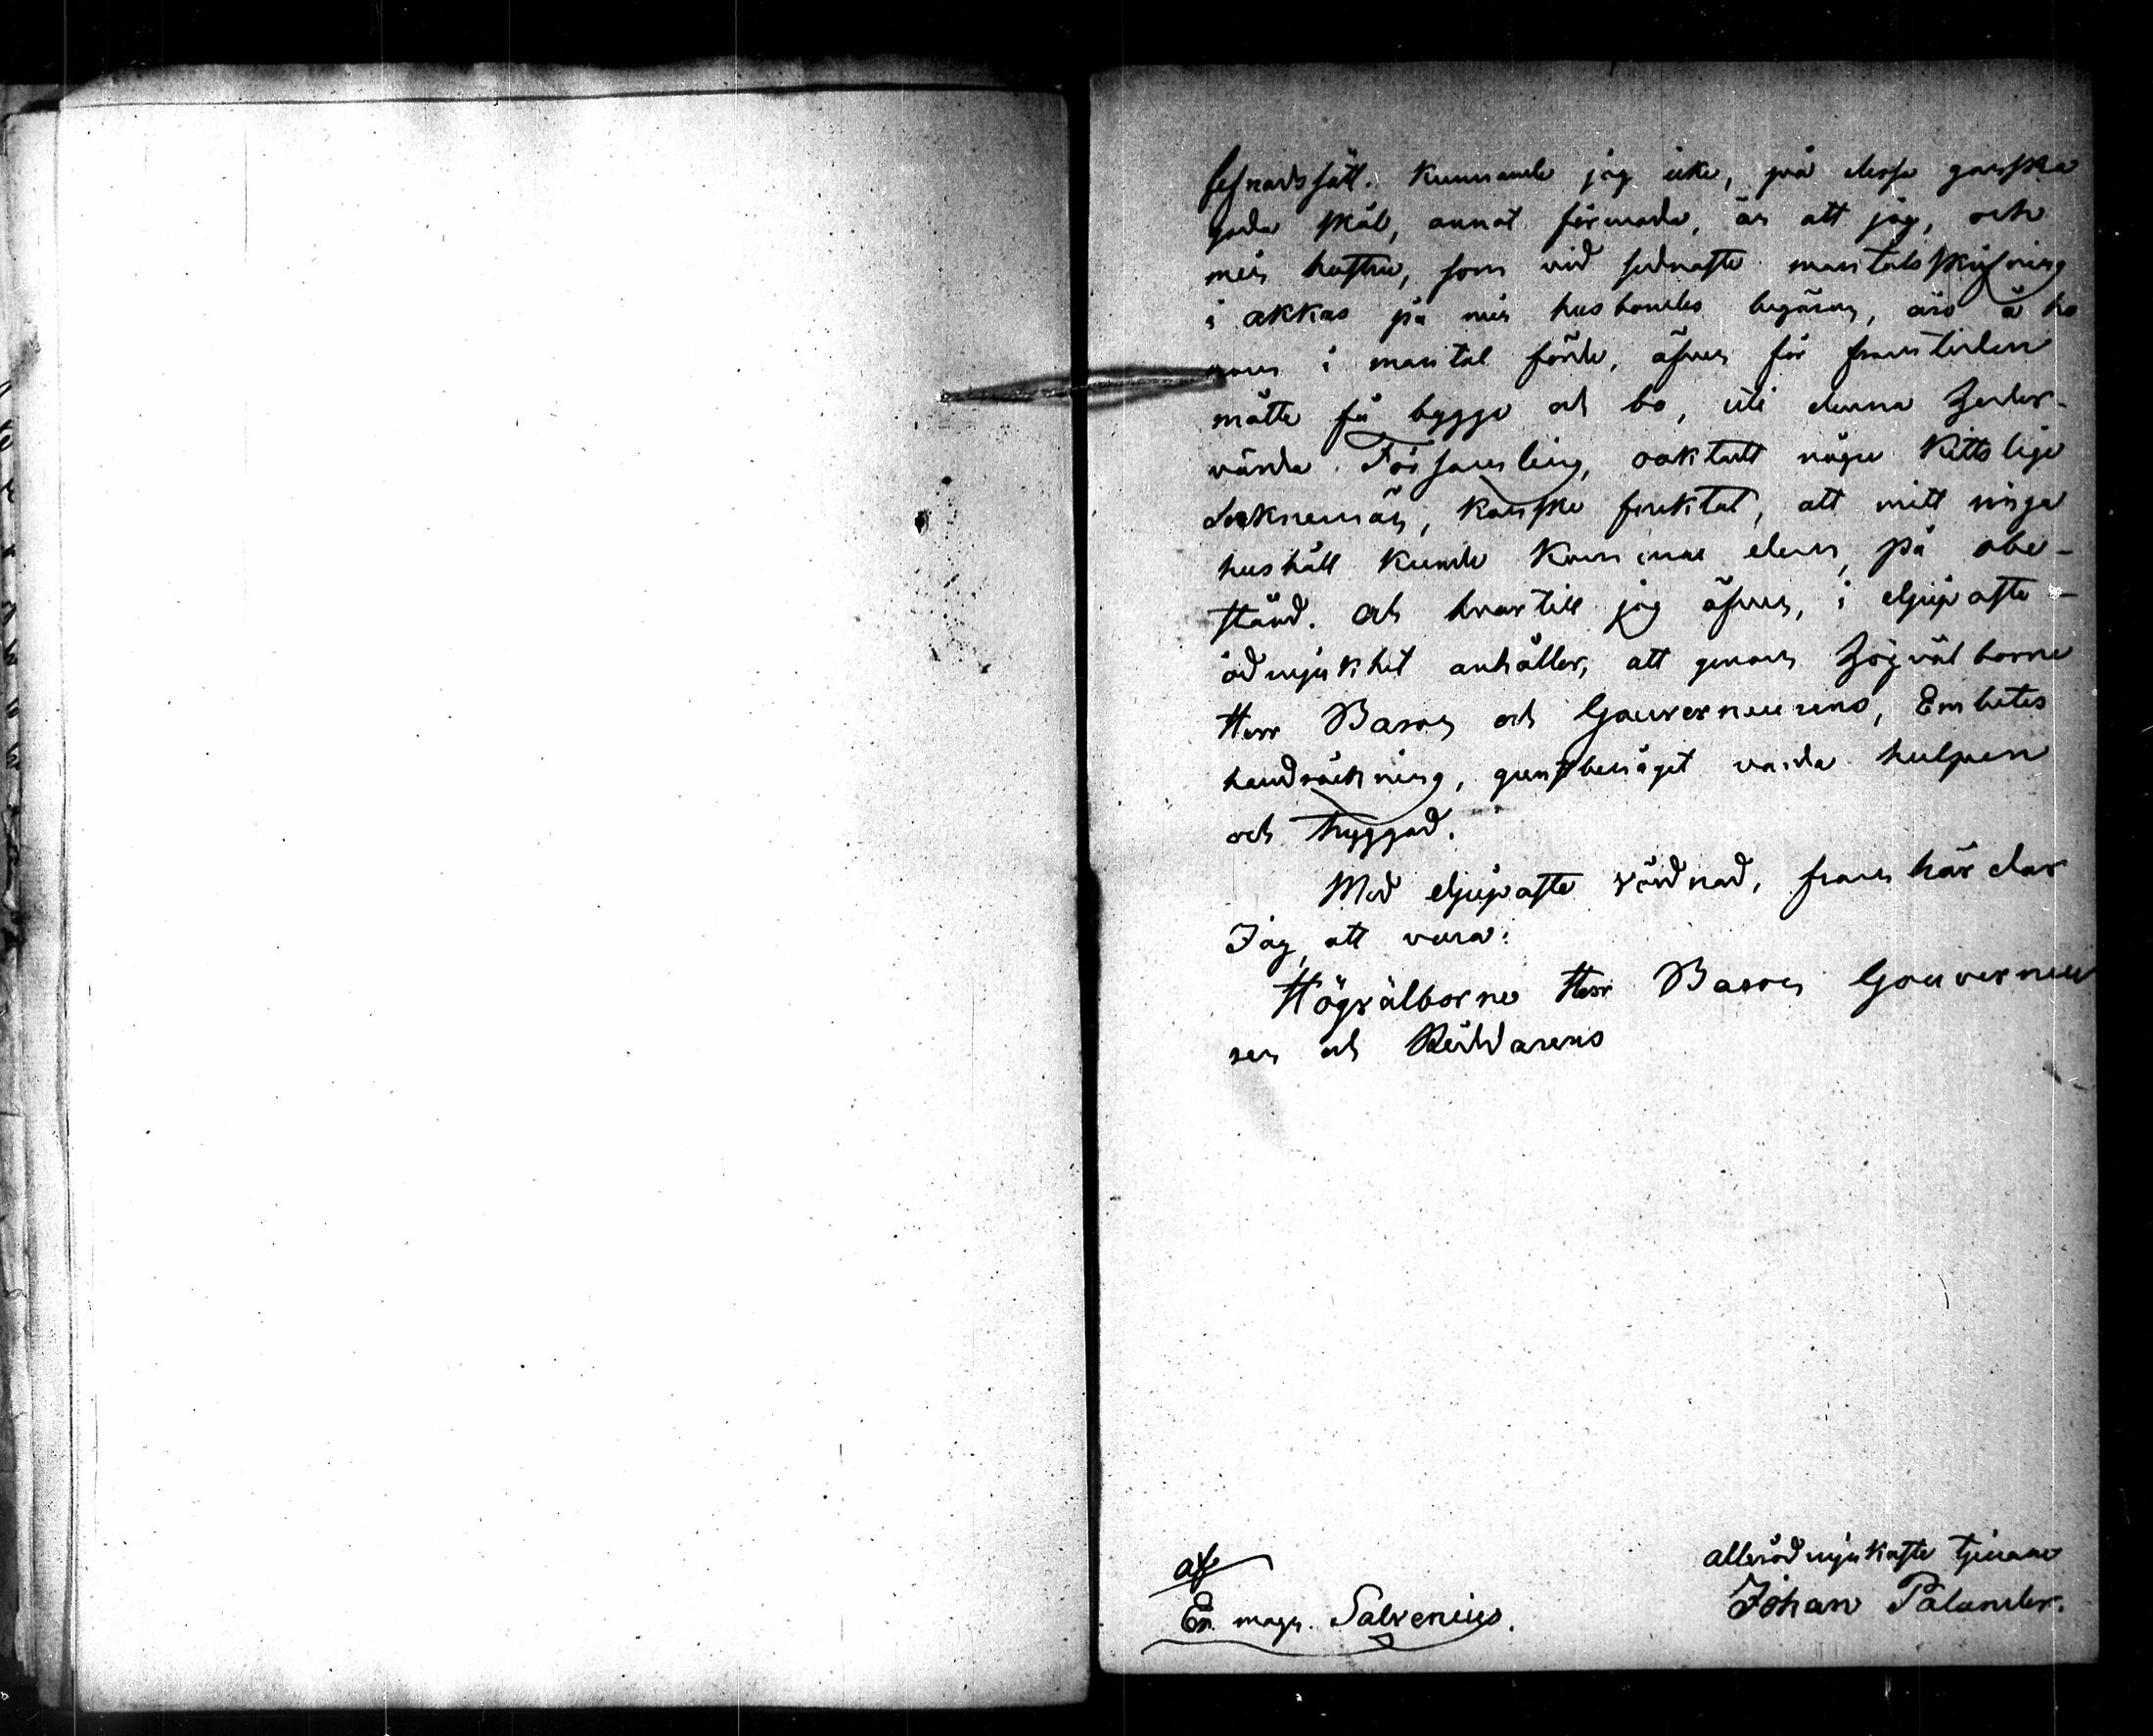 lefnadssätt. Kunnande jag icke, på dessa ganska
goda skäl, annat förmoda, än att jag, och
min hustru, som vid sednaste mantalsskrifning
i Akkas på min husbondes begäran, äro å ho
nom i mantal förde, äfven för framtiden
måtte få bygga och bo, uti denna Heder-
värda Församling, oaktadt någre Kittslige
Soknemän, kanske fruktat, att mitt ringa
hushåll kunde komma dem, på obe-
stånd. Och hvartill jag äfven, i djupaste
ödmjukhet anhåller, att genom Högvälborne
Herr Baron och Gouverneurens, Embetes
handräckning, gunstbenäget varda hulpen
och tryggad.
Med djupaste vördnad, framhärdar
Jag att vara:
Högvälborne Herr Baron Gouverneu
ren och Riddarens
allerödmjukaste tjenare
Johan Palander.
af
En. magn. Salvenius.